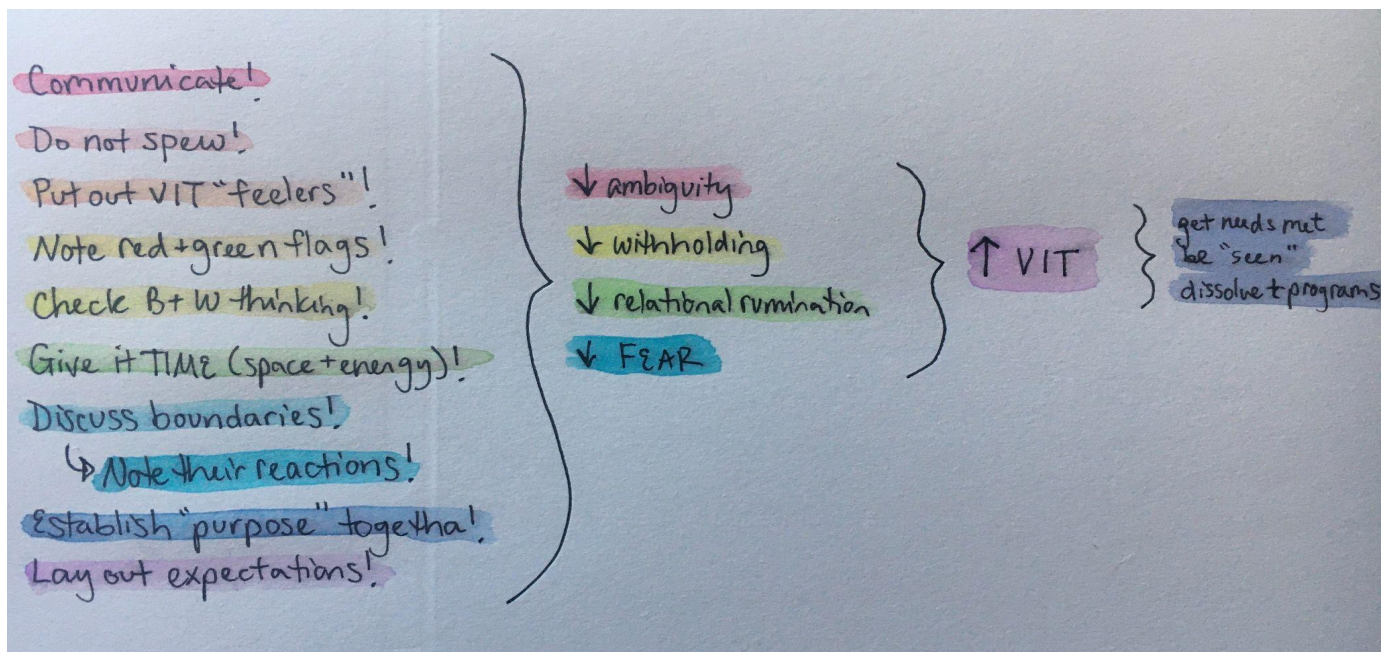 Communicate!
Do not spew!
Put out VIT "feelers"!
Note red+green flags!
Check B+W thinking!
Give it TIME (space+energy)!
Discuss boundaries!
↳ Note their reactions!
Establish "purpose" togetha!
Lay out expectations!
↓ ambiguity
↓ withholding
↓ relational rumination
↓ FEAR
↑ VIT
get needs met
be "seen"
dissolve t programs